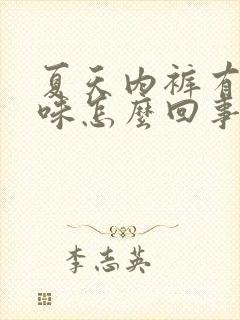 夏天内裤有
味怎麼回事
李志英